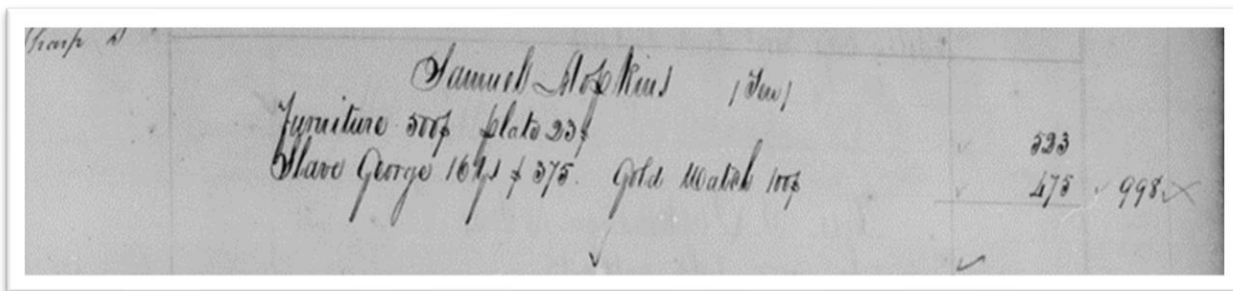 Samuel Hopkins (Ten)
Furniture 500$ plate 23$ 523
Slave George 16 yrs $ 375. Gold Watch 100$ 475 998